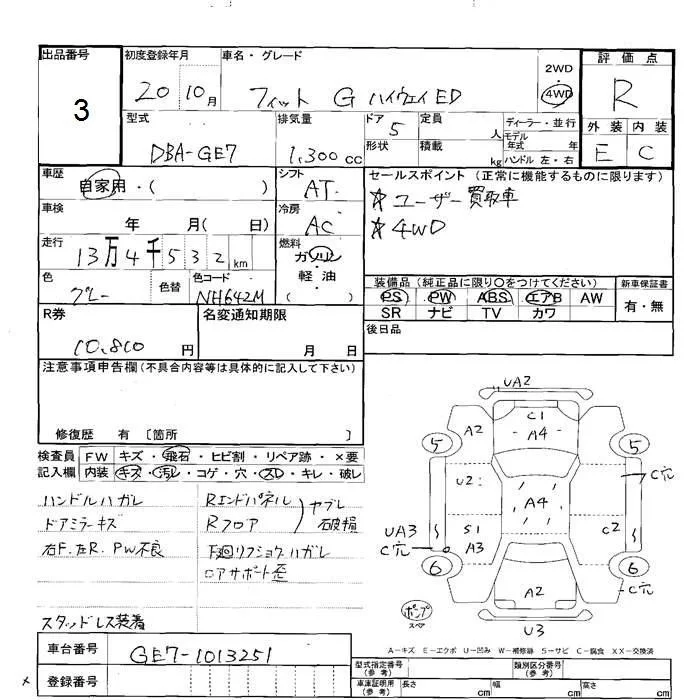 出品番号
3
初度登録年月
20 10月
車名・グレード
フィット G ハイウェイED
2WD
・
4WD
評価点
R
外装 内装
E C
型式
DBA-GE7
排気量
1,300 cc
ドア 5
形状
定員 人
積載 kg
ディーラー・並行
モデル年式 年
ハンドル 左・右
車歴
自家用・( )
シフト
AT
車検
年 月( 日)
冷房
AC
走行
13万4千532km
燃料
ガソリン
軽・油
( )
色
グレー
色替
色コード
NH642M
セールスポイント (正常に機能するものに限ります)
☆ユーザー買取車
☆4WD
装備品 (純正品に限り〇をつけてください)
PS PW ABS エアB AW
SR ナビ TV カワ
新車保証書
有・無
後日品
R券
10,810 円
名変通知期限
月 日
注意事項申告欄 (不具合内容等は具体的に記入して下さい)
修復歴 有 〔箇所 〕
検査員記入欄
FW キズ・飛石・ヒビ割・リペア跡・×要
内装 キズ・汚レ・コゲ・穴・スレ・キレ・破レ
ハンドルハガレ
ドアミラーキズ
右F.左R.PW不良
スタッドレス装着
Rエンドパネル
Rフロア
ヤブレ
破損
下廻リフショクハガレ
ロアサポート歪
車台番号
GE7-1013251
登録番号
×
UA2
C1
A4
A2
5
5
U2
A4
C穴
UA3
C穴
S1
A3
C2
6
6
A2
C穴
ポンプ
スペア
U3
A-キズ E-エクボ U-凹み W-補修跡 S-サビ C-腐食 XX-交換済
型式指定番号
(参考)
類別区分番号
(参考)
車庫証明用
(参考)
長さ cm
幅 cm
高さ cm